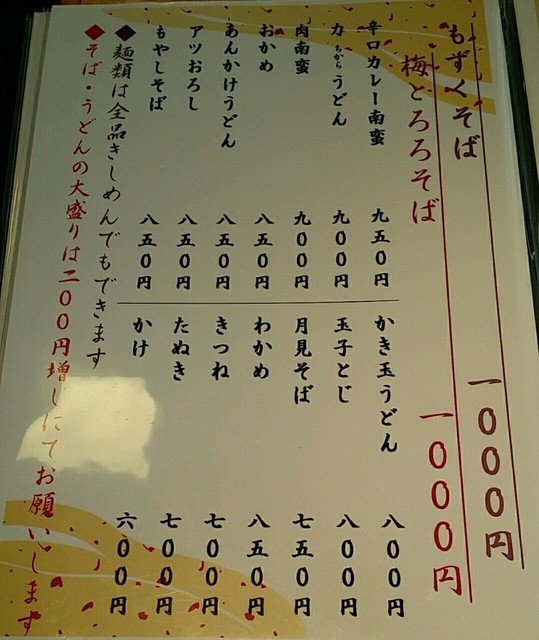 もずくそば 一〇〇〇円
梅とろろそば 一〇〇〇円
辛口カレー南蛮 九五〇円
力うどん 九〇〇円
ちから
肉南蛮 九〇〇円
おかめ 八五〇円
あんかけうどん 八五〇円
アツおろし 八五〇円
もやしそば 八五〇円
かき玉うどん 八〇〇円
玉子とじ 八〇〇円
月見そば 七五〇円
わかめ 八五〇円
きつね 七〇〇円
たぬき 七〇〇円
かけ 六〇〇円
◆麺類は全品きしめんでもできます
◆そば・うどんの大盛りは二〇〇円増しにてお願いします